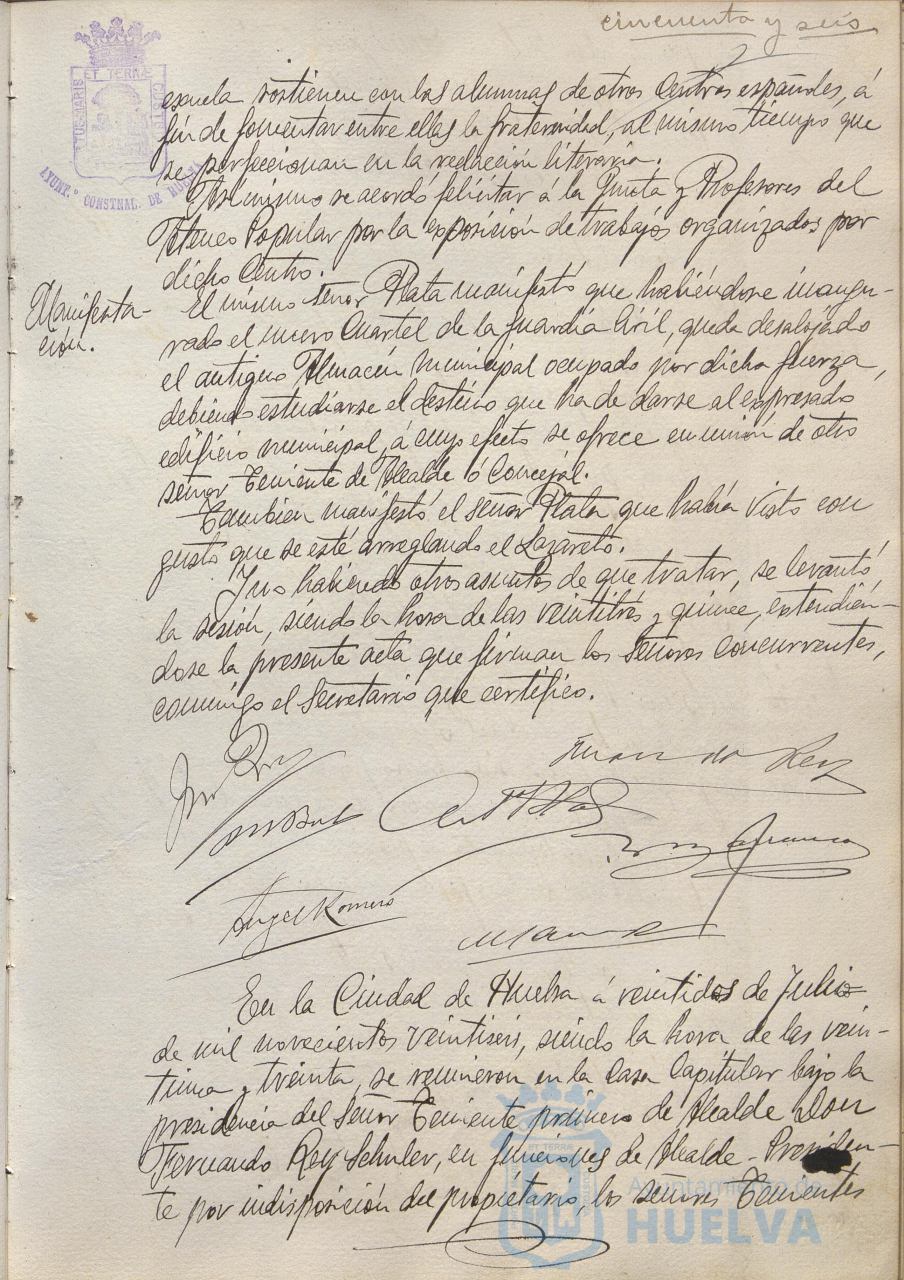 cincuenta y seis
ET TERRÆ
AYUNT.º CONSTNAL. DE HUELVA
escuela sostienen con las alumnas de otros Centros españoles, á
fin de fomentar entre ellas la fraternidad, al mismo tiempo que
se perfeccionan en la redacción literaria.
Asimismo se acordó felicitar á la Junta y Profesores del
Ateneo Popular por la exposición de trabajos organizados por
dicho Centro.
Manifesta-
ción.
El mismo señor Plata manifestó que habiéndose inaugu-
rado el nuevo Cuartel de la Guardia Civil, queda desalojado
el antiguo Almacén municipal ocupado por dicha fuerza,
debiendo estudiarse el destino que ha de darse al expresado
edificio municipal, á cuyo efecto se ofrece en unión de otro
señor Teniente de Alcalde ó Concejal.
También manifestó el señor Plata que había visto con
gusto que se esté arreglando el Lazareto.
Y no habiendo otros asuntos de que tratar, se levantó
la sesión, siendo la hora de las veintitrés y quince, extendién-
dose la presente acta que firman los Señores concurrentes,
conmigo el Secretario que certifico.
Fernando Rey
Angel Romero
En la Ciudad de Huelva á veintidos de Julio
de mil novecientos veintiseis, siendo la hora de las vein-
tiuna y treinta, se reunieron en la Casa Capitular bajo la
presidencia del Señor Teniente primero de Alcalde Don
Fernando Rey Schuler, en funciones de Alcalde-Presiden-
te por indisposición del propietario, los señores Tenientes
Ayuntamiento de
HUELVA